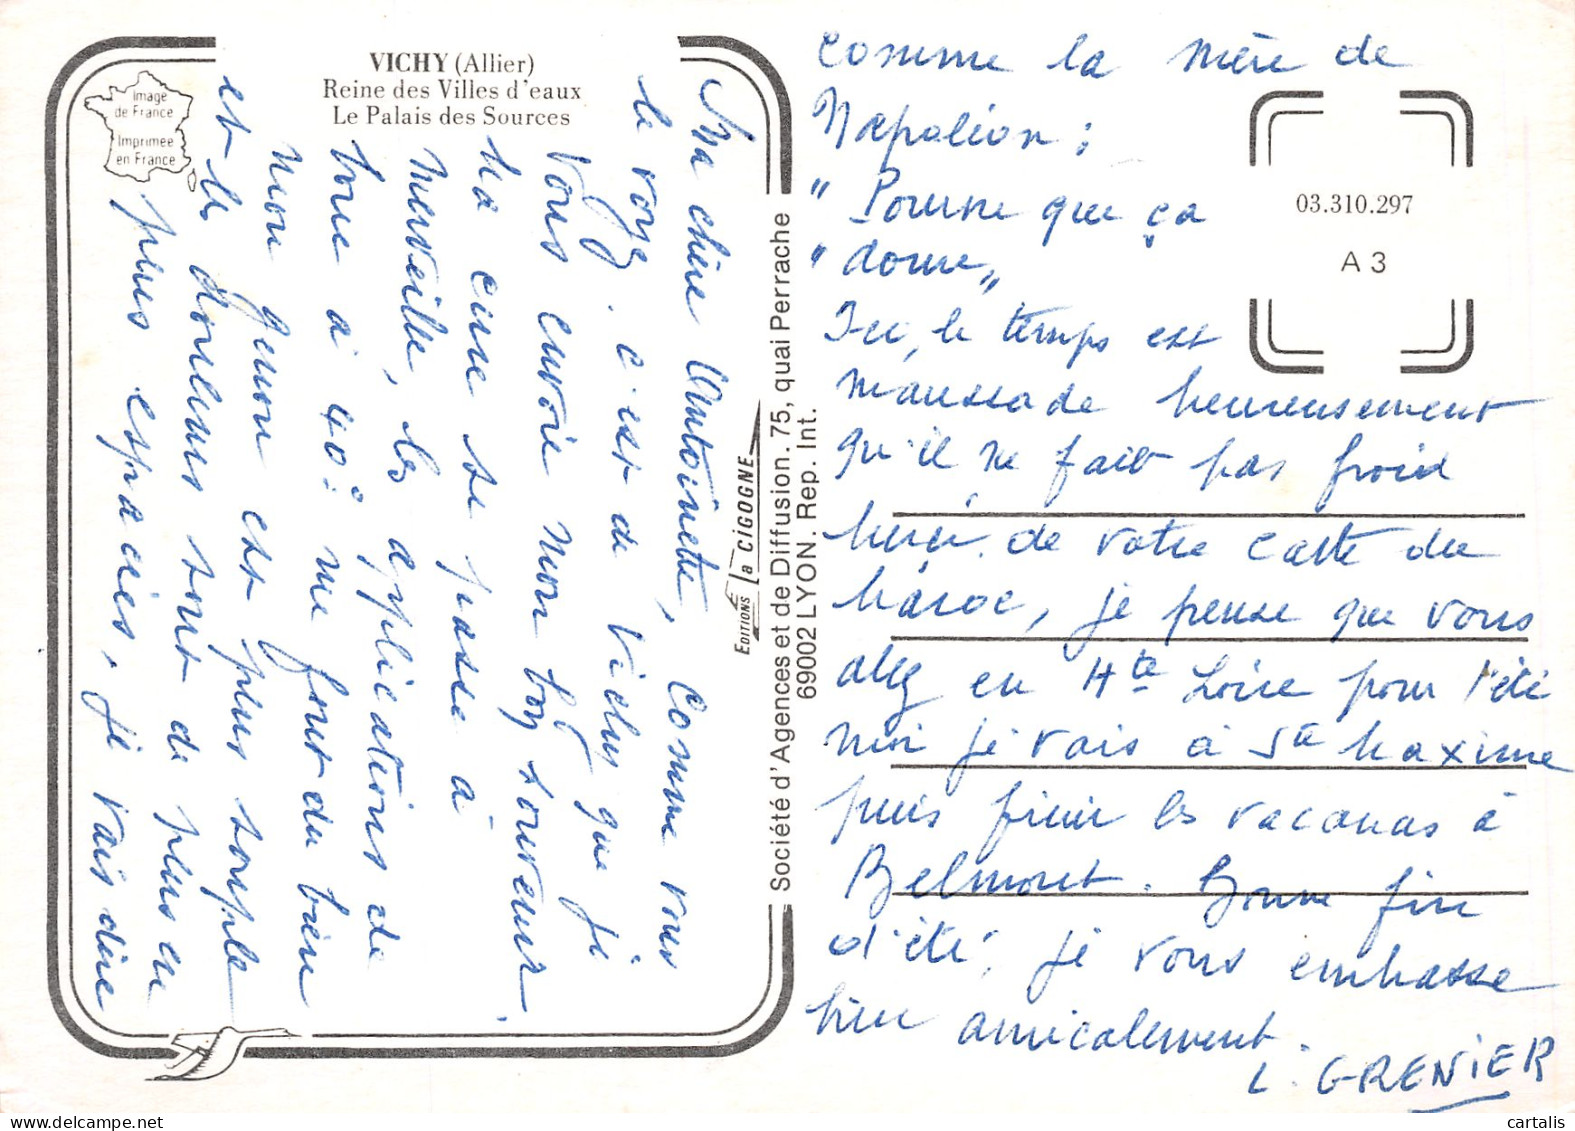 VICHY (Allier)
Reine des Villes d'eaux
Le Palais des Sources
Image
de France
Imprimée
en France
Ma chère Antoinette, comme vous
le voyez c'est de Vichy que je
vous envoie mon bon souvenir.
Ma cure se passe à
merveille, les applications de
boue à 40° me font du bien
mon genou est plus souple
et les douleurs sont de plus en
plus espacées, je vais dire
EDITIONS la CIGOGNE
Société d'Agences et de Diffusion. 75, quai Perrache
69002 LYON. Rep. Int.
03.310.297
A 3
comme la mère de
Napoléon :
" Pourvu que ça
" doure "
Ici, le temps est
maussade heureusement
qu'il ne fait pas froid
Merci de votre carte du
Maroc, je pense que vous
allez en Hte Loire pour l'été
moi je vais à Ste Maxime
puis finir les vacances à
Belmont. Bonne fin
d'été, je vous embrasse
bien amicalement.
L. GRENIER
cartalis